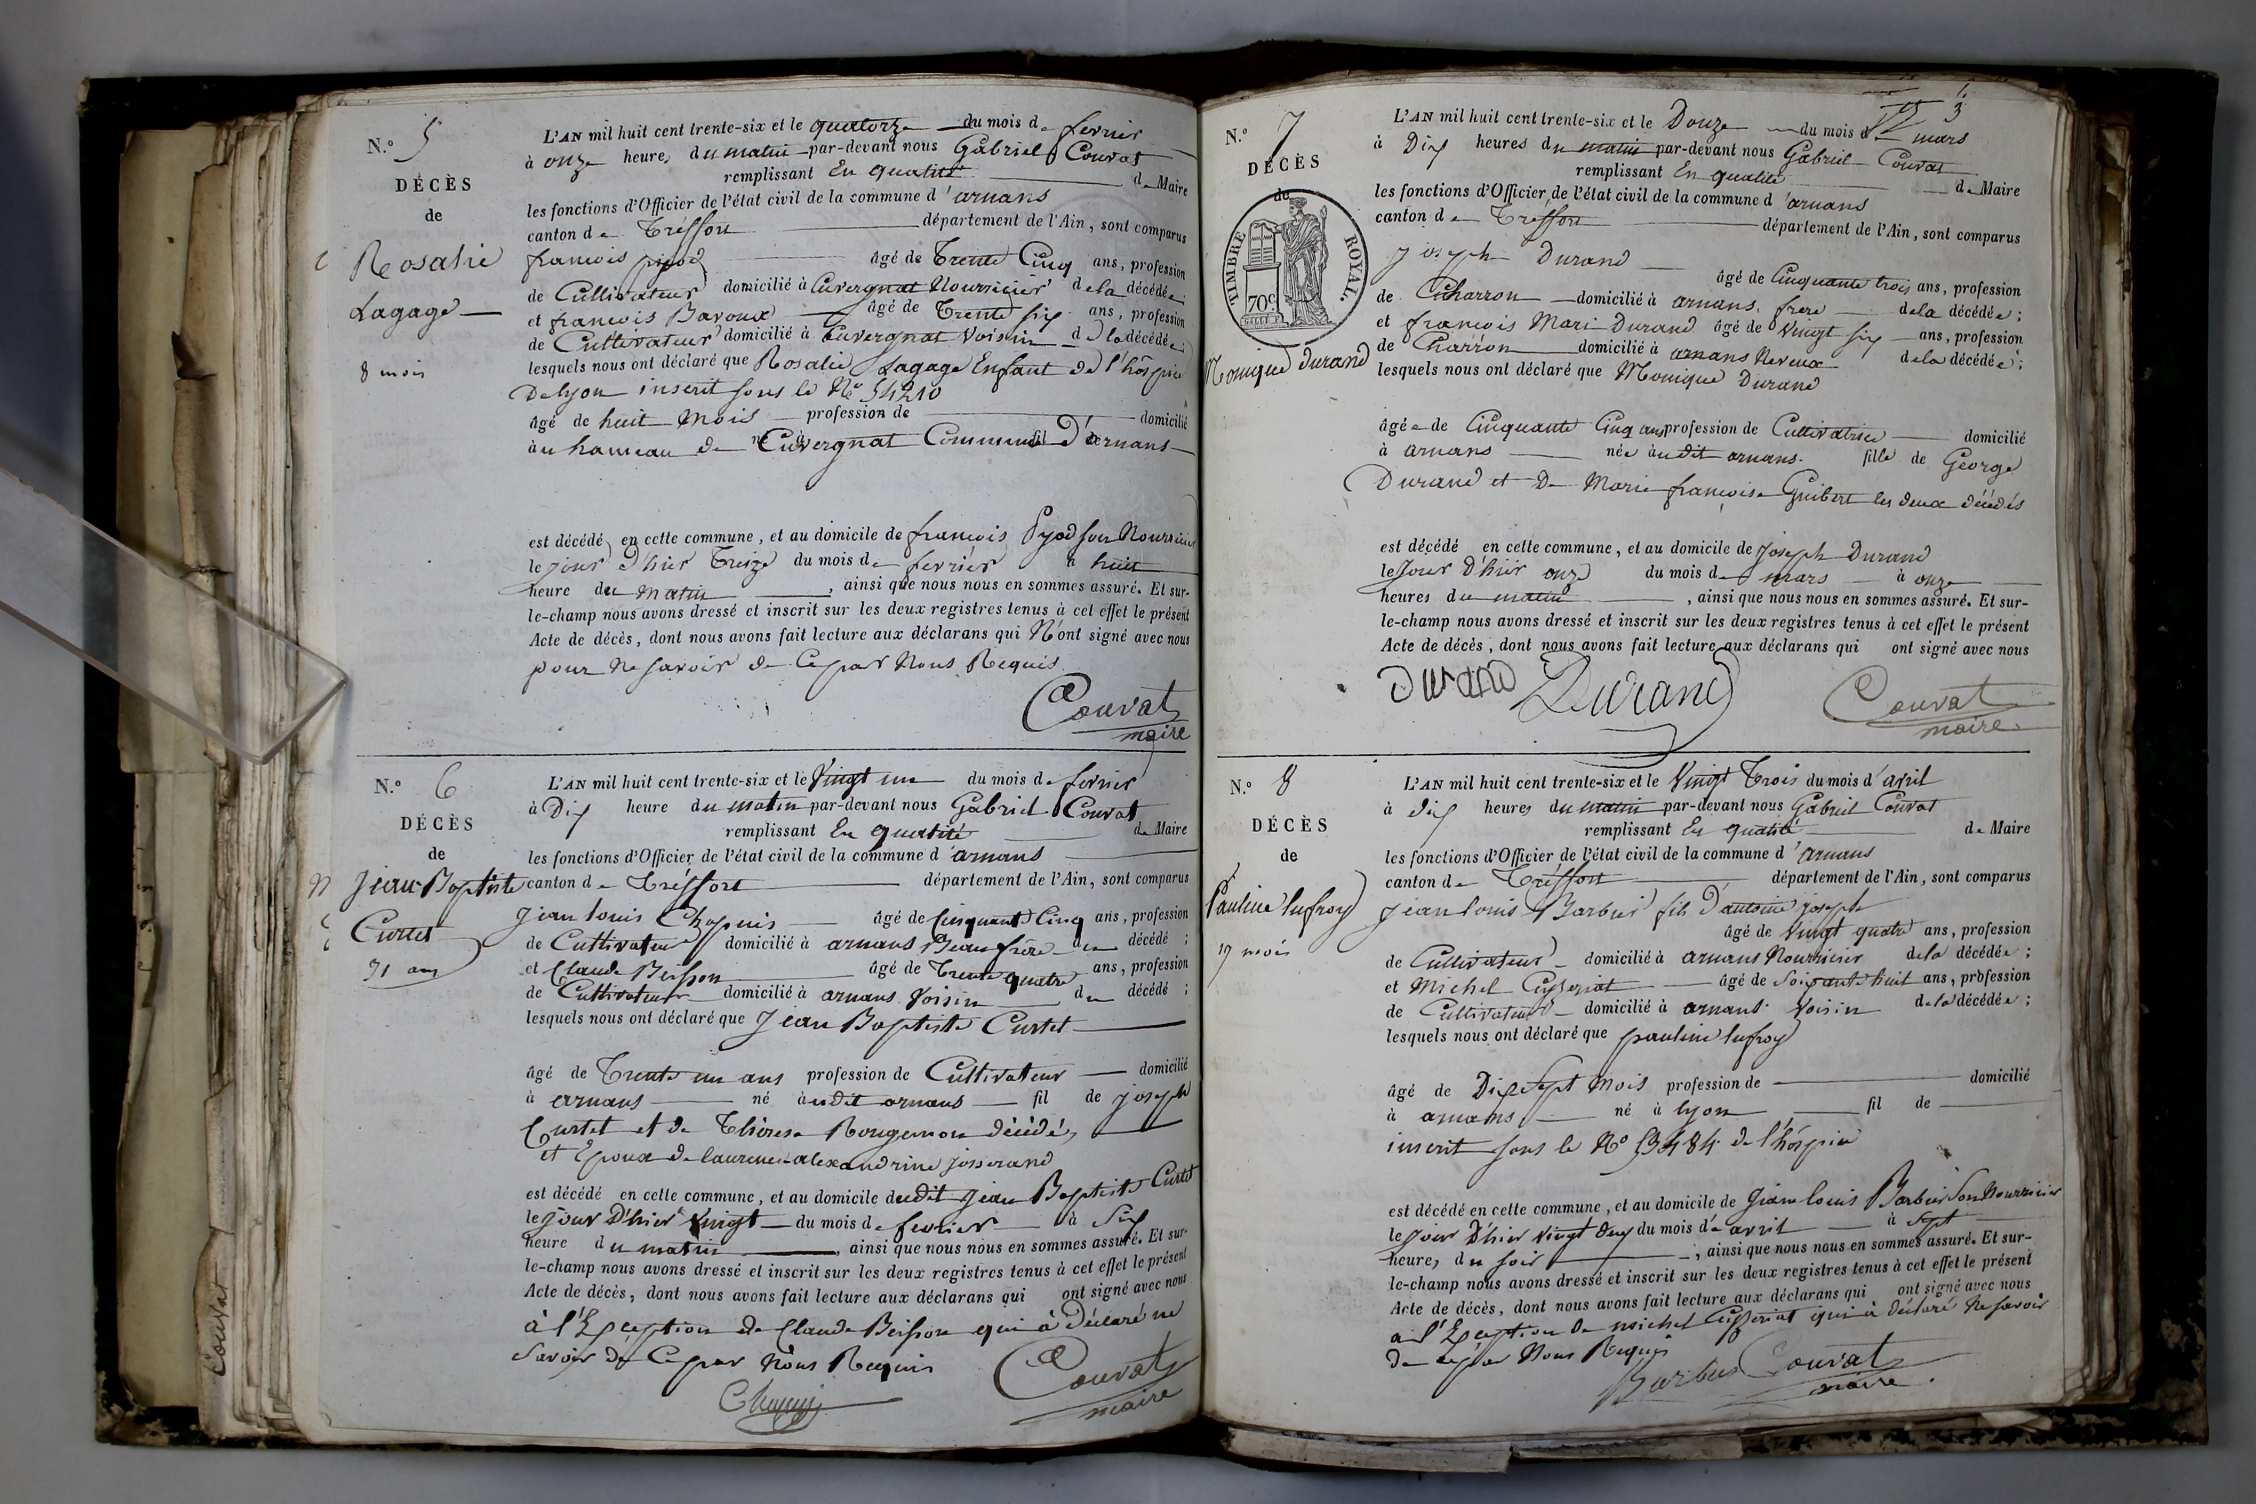 N.o 5
DÉCÈS
de
Rosalie
Lagage
8 mois
L'AN mil huit cent trente-six et le quatorze du mois de fevrier
à onze heures du matin par-devant nous Gabriel Couvat
remplissant En qualité de Maire
les fonctions d'Officier de l'état civil de la commune d'arnans
canton de Tréffort département de l'Ain, sont comparus
francois pyod âgé de Trente Cinq ans, profession
de Cultivateur domicilié à Cuvergnat Nourricier de la décédée;
et francois Bavoux âgé de Trente six ans, profession
de Cultivateur domicilié à Cuvergnat Voisin de la décédée;
lesquels nous ont déclaré que Rosalie Lagage Enfant de l'hôspice
De lyon inscrit sous le No 54210
âgé de huit Mois profession de domicilié
à au hameau de Cuvergnat Commune D'arnans
est décédé en cette commune, et au domicile de francois Pyod son Nourricier
le jour D'hier Treize du mois de fevrier à huit
heure du matin, ainsi que nous nous en sommes assuré. Et sur-
le-champ nous avons dressé et inscrit sur les deux registres tenus à cet effet le présent
Acte de décès, dont nous avons fait lecture aux déclarans qui N'ont signé avec nous
pour Ne savoir de Ce par Nous Requis
Couvat
maire
N.o 6
DÉCÈS
de
Jean Baptiste
Curtet
31 ans
L'AN mil huit cent trente-six et le Vingt un du mois de fevrier
à Dix heure du matin par-devant nous Gabriel Couvat
remplissant En qualité de Maire
les fonctions d'Officier de l'état civil de la commune d'arnans
canton de Tréffort département de l'Ain, sont comparus
Jean louis Chapuis âgé de Cinquante Cinq ans, profession
de Cultivateur domicilié à arnans Beau frère du décédé;
et Claude Beisson âgé de Trente quatre ans, profession
de Cultivateur domicilié à arnans Voisin du décédé;
lesquels nous ont déclaré que Jean Baptiste Curtet
âgé de Trente un ans profession de Cultivateur domicilié
à arnans né àudit arnans fil de joseph
Curtet et de Thérese Rougemon décédés
et Epoux de laurence alexandrine josserand
est décédé en cette commune, et au domicile dudit Jean Baptiste Curtet
le jour D'hier Vingt du mois de fevrier à Six
heure du matin, ainsi que nous nous en sommes assuré. Et sur-
le-champ nous avons dressé et inscrit sur les deux registres tenus à cet effet le présent
Acte de décès, dont nous avons fait lecture aux déclarans qui ont signé avec nous
à l'Exception de Claude Beisson qui à Déclaré ne
Savoir de Ce par Nous Requis
Couvat
maire
N.o 7
DÉCÈS
de
TIMBRE ROYAL.
70c
Monique Durand
3
L'AN mil huit cent trente-six et le Douze du mois de mars
à Dix heures du matin par-devant nous Gabriel Couvat
remplissant En qualité de Maire
les fonctions d'Officier de l'état civil de la commune d'arnans
canton de Tréffort département de l'Ain, sont comparus
joseph Durand
âgé de Cinquante trois ans, profession
de Charron domicilié à arnans. frere de la décédée;
et francois Mari Durand âgé de Vingt six ans, profession
de Charron domicilié à arnans Neveux de la décédée;
lesquels nous ont déclaré que Monique Durand
âgée de Cinquante Cinq ans profession de Cultivatrice domicilié
à arnans née àudit arnans. fille de George
Durand et De Marie françoise Guibert les deux décédés
est décédé en cette commune, et au domicile de joseph Durand
le Jour D'hier onze du mois de mars à onze
heures du matin, ainsi que nous nous en sommes assuré. Et sur-
le-champ nous avons dressé et inscrit sur les deux registres tenus à cet effet le présent
Acte de décès, dont nous avons fait lecture aux déclarans qui ont signé avec nous
Durand Durand Couvat
maire
N.o 8
DÉCÈS
de
Pauline lufroy
17 mois
L'AN mil huit cent trente-six et le Vingt Trois du mois d'avril
à dix heures du matin par-devant nous Gabriel Couvat
remplissant En qualité de Maire
les fonctions d'Officier de l'état civil de la commune d'arnans
canton de Tréffort département de l'Ain, sont comparus
jean louis Barbier fils D'antoine joseph
âgé de Vingt quatre ans, profession
de Cultivateur domicilié à arnans Nourricier de la décédée;
et Michel Cusseriat âgé de Soixante huit ans, profession
de Cultivateur domicilié à arnans Voisin de la décédée;
lesquels nous ont déclaré que pauline lufroy
âgé de Dix Sept Mois profession de domicilié
à arnans né à lyon fil de
inscrit sous le No 53484 de l'hôspice
est décédé en cette commune, et au domicile de Jean louis Barbier son Nourricier
le jour D'hier Vingt deux du mois de avril à Sept
heures du soir, ainsi que nous nous en sommes assuré. Et sur-
le-champ nous avons dressé et inscrit sur les deux registres tenus à cet effet le présent
Acte de décès, dont nous avons fait lecture aux déclarans qui ont signé avec nous
a l'Exception de michel Cusseriat qui à déclaré Ne savoir
De ce par Nous Requis
Barbier Couvat
maire
Couvat